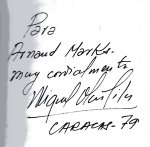 Para
Armand Marks.
muy cordialmente
Miguel Otero Silva
CARACAS-79